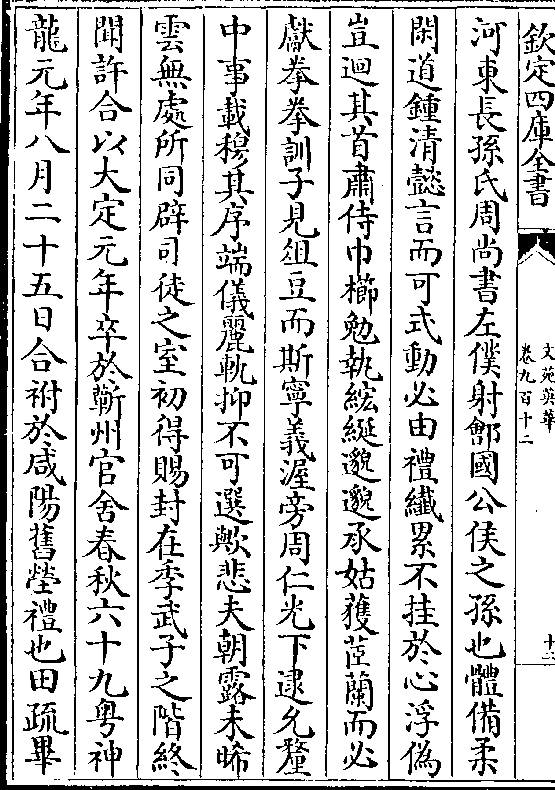 欽定四庫全書
文苑英華
卷九百十二
十三
河東長孫氏周尚書左僕射鄶國公侯之孫也體備柔
閑道鍾清懿言而可式動必由禮纎累不挂於心浮偽
豈迴其首肅侍巾櫛勉執綋綖邈邈承姑獲茝蘭而必
獻拳拳訓子見俎豆而斯寧義渥旁周仁光下逮允釐
中事載穆其序端儀麗軌抑不可選歟悲夫朝露未晞
雲無處所同辟司徒之室初得賜封在季武子之階終
聞許合以大定元年卒於蘄州官舍春秋六十九粤神
龍元年八月二十五日合祔於咸陽舊塋禮也田疏畢